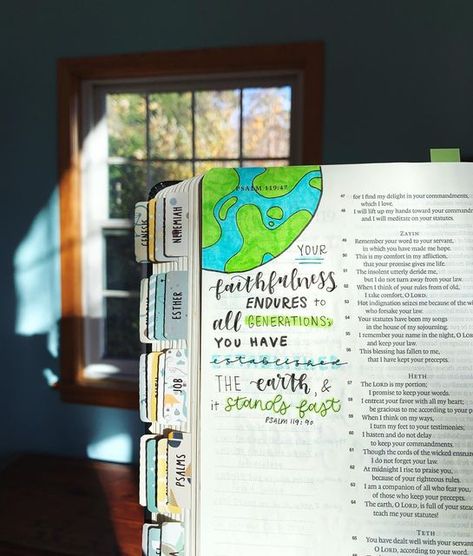 NEHEMIAH
ESTHER
JOB
PSALMS
PSALM 119:47
YOUR
faithfulness
ENDURES to
all GENERATIONS;
YOU HAVE
established
THE earth, &
it stands fast
PSALM 119:90
47 for I find my delight in your commandments,
which I love.
48 I will lift up my hands toward your commandments
and I will meditate on your statutes.
ZAYIN
49 Remember your word to your servant,
in which you have made me hope.
50 This is my comfort in my affliction,
that your promise gives me life.
51 The insolent utterly deride me,
but I do not turn away from your law.
52 When I think of your rules from of old,
I take comfort, O LORD.
53 Hot indignation seizes me because of the
who forsake your law.
54 Your statutes have been my songs
in the house of my sojourning.
55 I remember your name in the night, O
and keep your law.
56 This blessing has fallen to me,
that I have kept your precepts.
HETH
57 The LORD is my portion;
I promise to keep your words.
58 I entreat your favor with all my heart;
be gracious to me according to your p
59 When I think on my ways,
I turn my feet to your testimonies;
60 I hasten and do not delay
to keep your commandments.
61 Though the cords of the wicked ensnare
I do not forget your law.
62 At midnight I rise to praise you,
because of your righteous rules.
63 I am a companion of all who fear you,
of those who keep your precepts.
64 The earth, O LORD, is full of your stea
teach me your statutes!
TETH
65 You have dealt well with your servant
O LORD, according to your word.
66